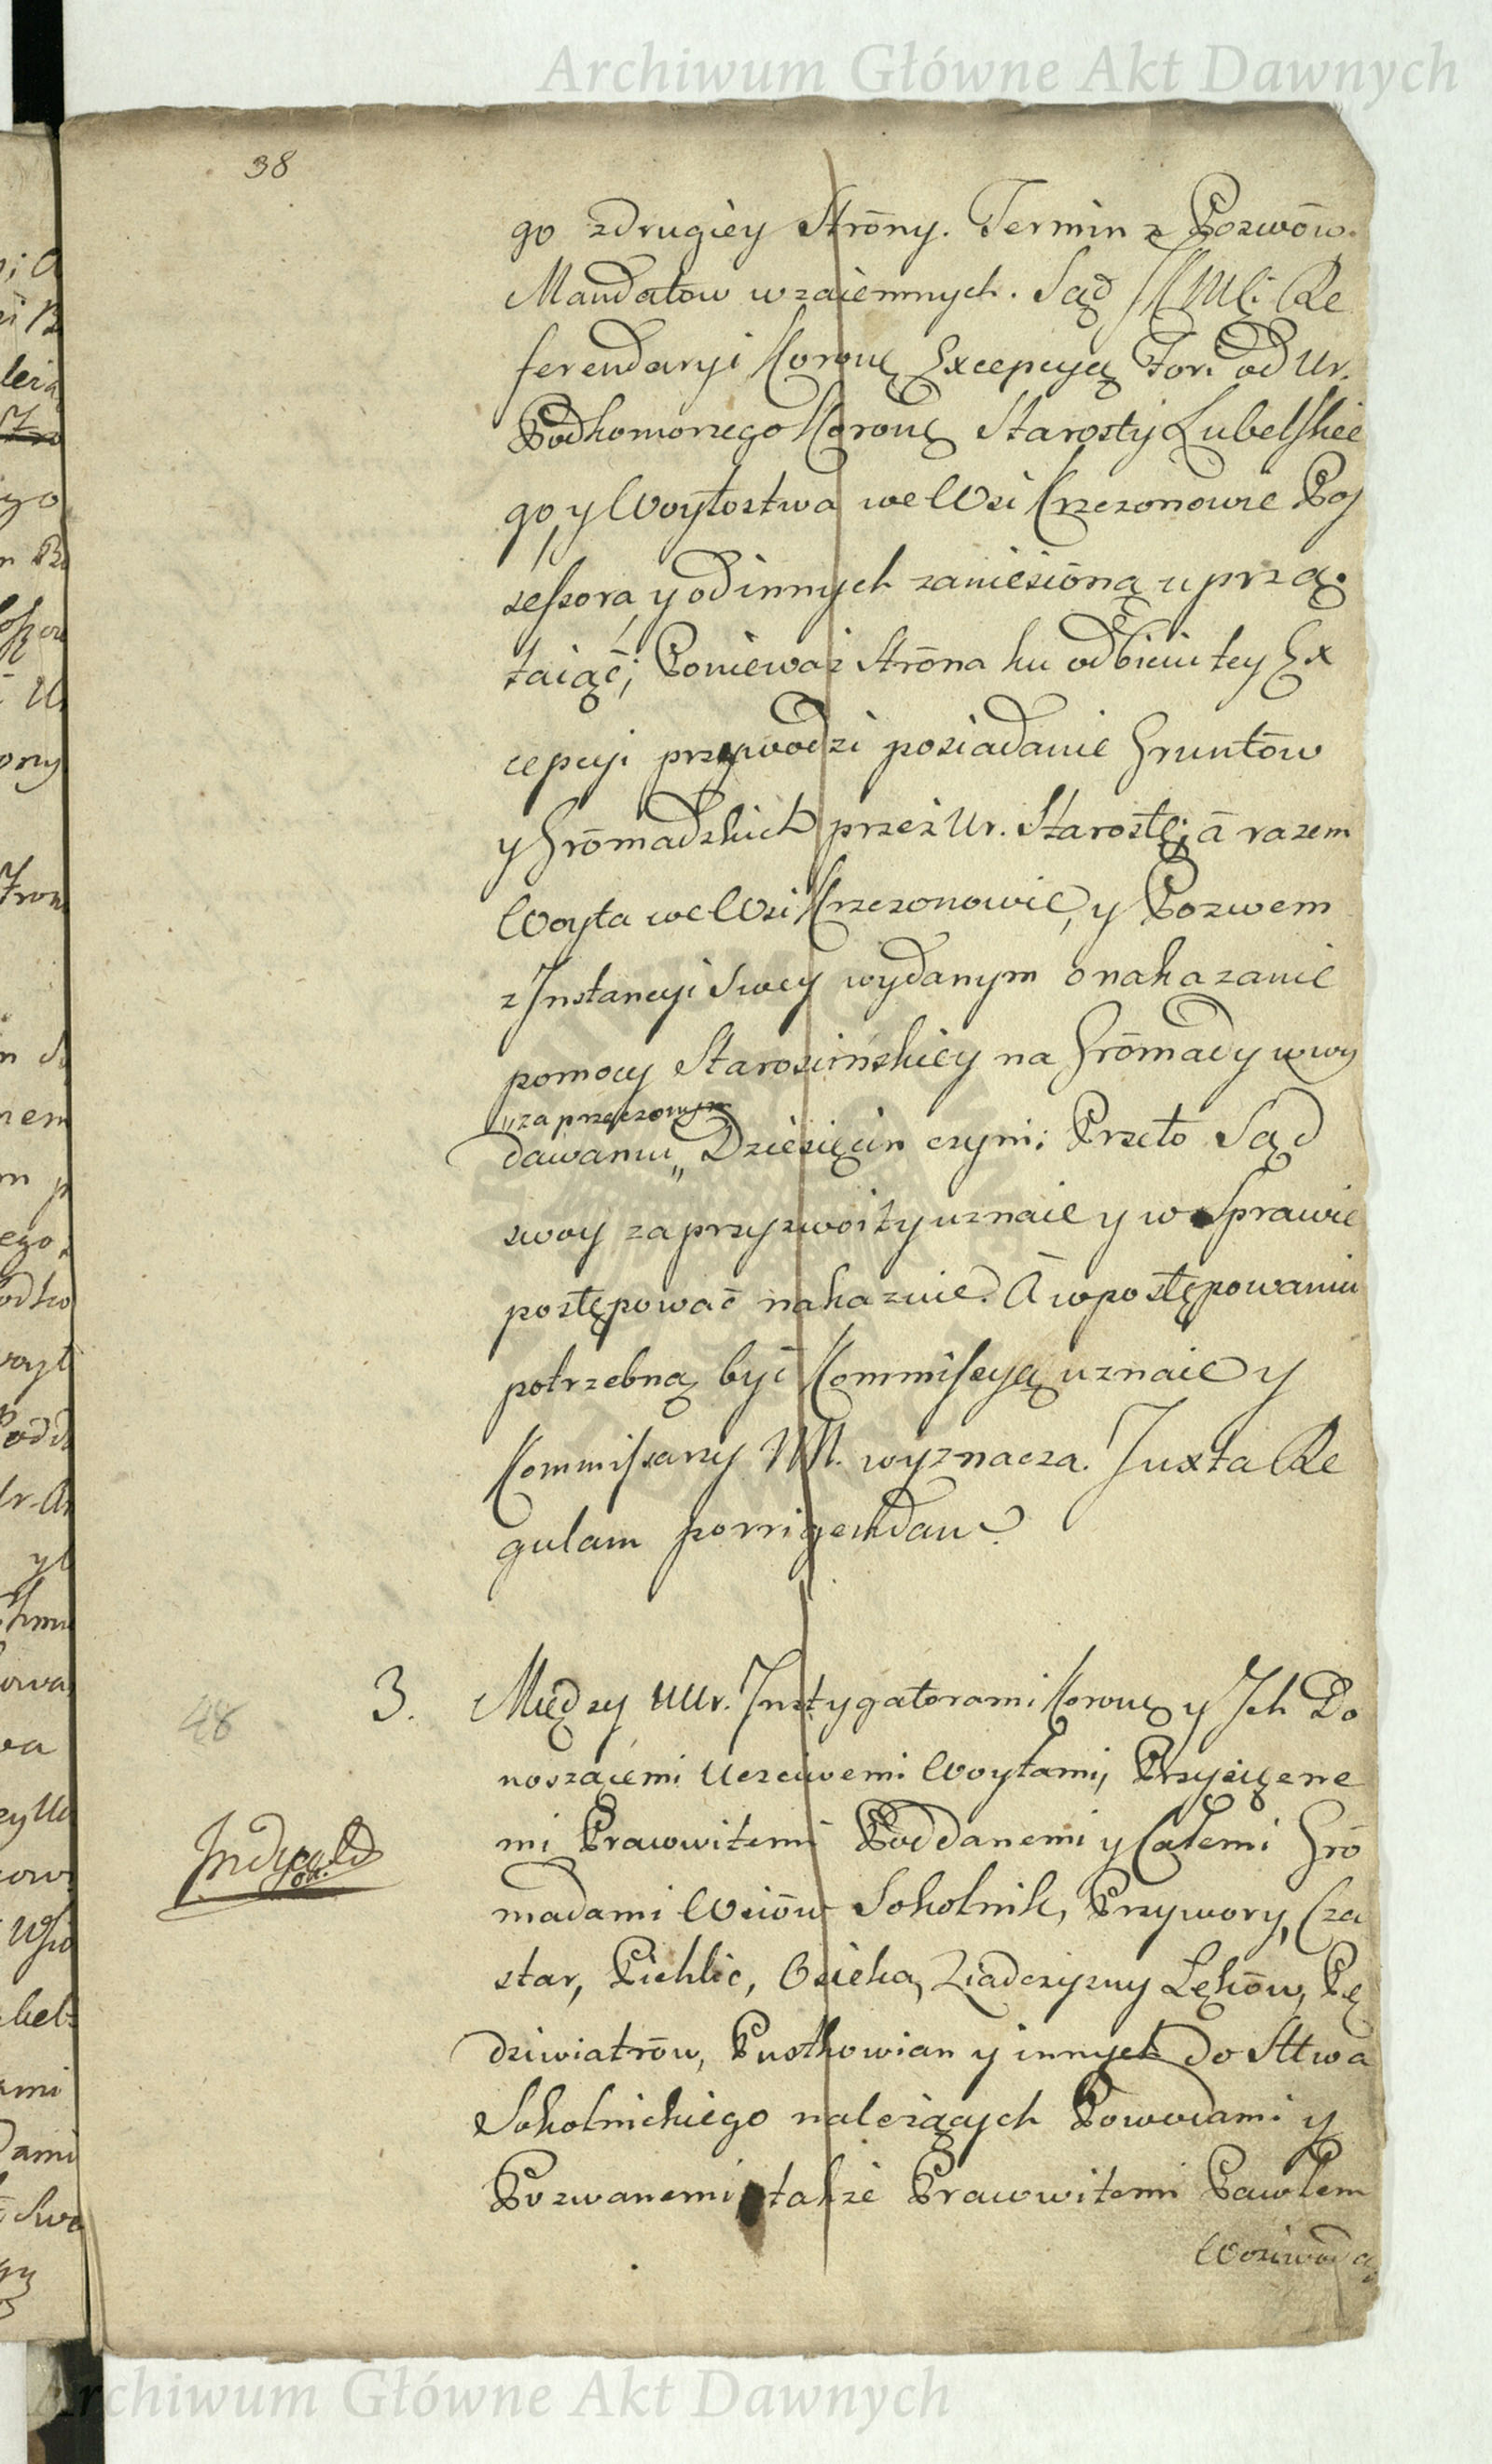 Archiwum Główne Akt Dawnych
38
go z drugiey Strōny. Termin z Pozwōw.
Mandatow wzaiemnych. Sąd JKMCi Re
ferendaryi Koronę Excepcyą Fori od Ur.
Podkomorzego Koronę Starosty Lubelskie
go, y Woytostwa we Wsi Krzczonowie Pos
sessora, y od innych zaniesiōną uprzą.
taiąc; Ponieważ Strōna ku odbiciu tey Ex
cepcyi przywodzi posiadanie Gruntōw
y Grōmadzkich przez Ur. Starostę; ā razem
Woyta we Wsi Krzczonowie, y Pozwem
z Instancyi Swey wydanym o nakazanie
pomocy Staroscińskiey na Grōmady w wy
„zaprzeczonym
dawaniu„ Dziesięcin czyni; Przeto Sąd
swoy za przyzwoity uznaie y w Sprawie
postępować nakazuie. A w postępowaniu
potrzebną być Kommissyą uznaie y
Kommissarzy NN. wyznacza. Juxta Re
gulam porrigendam.
3. Między UUr. Instygatorami Koronę y Jch Do
noszącemi Uczciwemi Woytami, Przysięgłe
mi Prawowitemi Poddanemi y Całemi Grō
madami Wsiōw Sokolnik, Przywory, Cza
star, Pichlic, Osieka, Ziadczyzny Lękōw, Pę
dziwiatrōw, Pustkowian y innych do Sttwa
Sokolnickiego należących Powodami y
Pozwanemi także Prawowitemi Pawłem
Woziwodą
48
Archiwum Główne Akt Dawnych